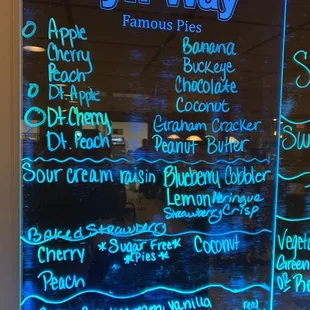 Way
Famous Pies
Apple
Cherry
Peach
Dt. Apple
Dt. Cherry
Dt. Peach
Banana
Buckeye
Chocolate
Coconut
Graham Cracker
Peanut Butter
Sour cream raisin
Blueberry Cobbler
Lemon Meringue
Strawberry Crisp
Baked Strawberry
Cherry
*Sugar Free*
*Pies*
Coconut
Peach
Vanilla
Real
Veget
Green